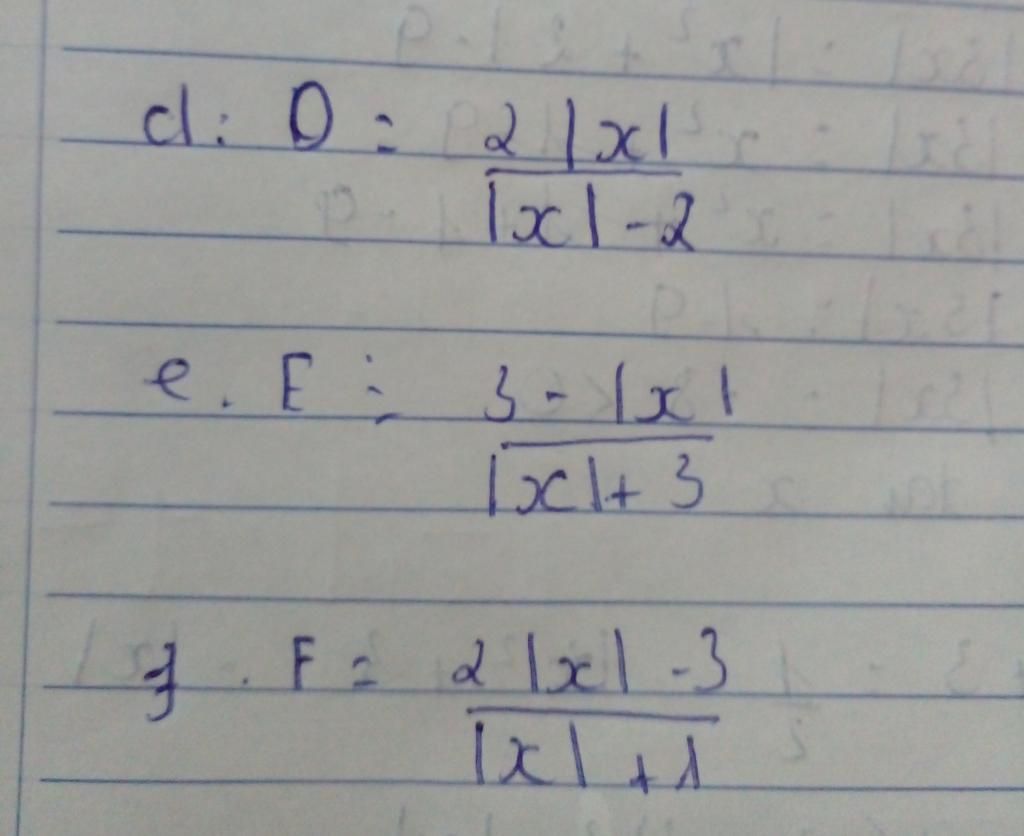 d: D = 2|x|
|x| - 2
e. E = 3 - |x|
|x| + 3
f. F = 2|x| - 3
|x| + 1